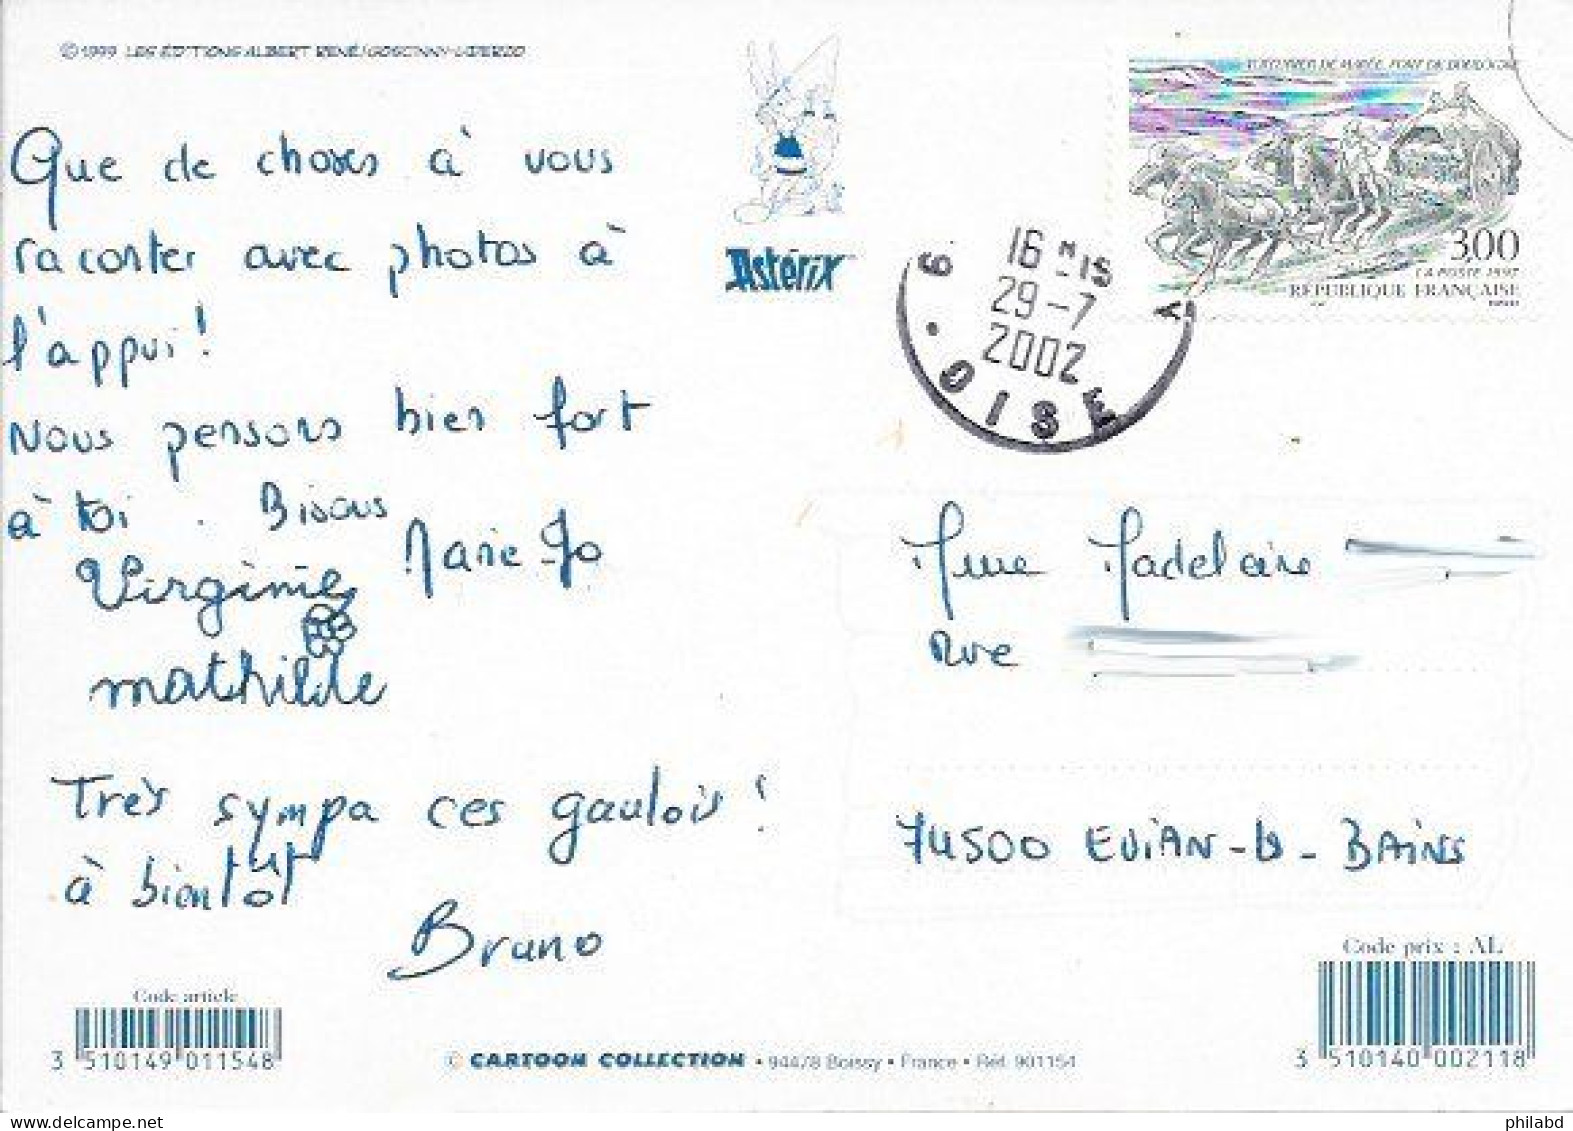 © 1999 LES ÉDITIONS ALBERT RENÉ/GOSCINNY-UDERZO
Que de choses à vous
raconter avec photos à
l'appui !
Nous pensons bien fort
à toi . Bisous
Marie Jo
Virginie
mathilde
Très sympa ces gaulois !
à bientôt
Bruno
Code article
3 510149 011548
© CARTOON COLLECTION • 94478 Boissy • France • Réf. 901154
Astérix
3,00
LA POSTE 1997
RÉPUBLIQUE FRANÇAISE
16 H 15
29-7
2002
OISE
Mme Madeleine
Rue
74500 EVIAN-LES-BAINS
Code prix : AL
3 510140 002118
philabd